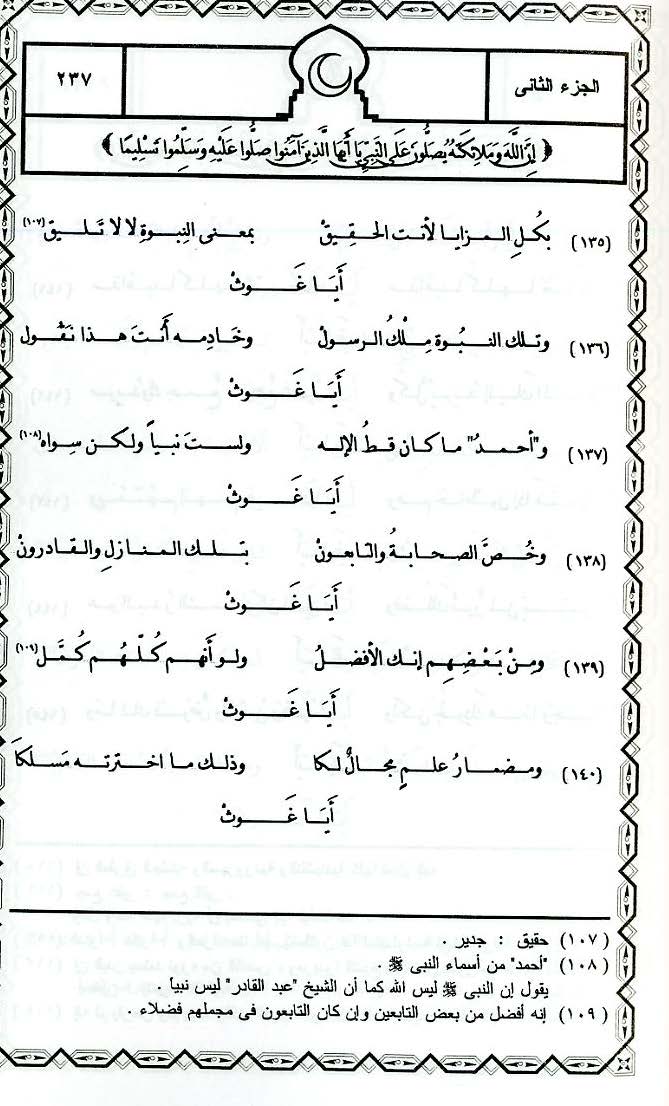 الجزء الثانى
٢٣٧
﴿ إِنَّ اللَّهَ وَمَلَائِكَتَهُ يُصَلُّونَ عَلَى النَّبِيِّ يَا أَيُّهَا الَّذِينَ آمَنُوا صَلُّوا عَلَيْهِ وَسَلِّمُوا تَسْلِيمًا ﴾
(١٣٥) بكُلِ المزايا لأنت الحقِيقْ بمعنى النِبوةِ لا لا تَليقْ(١٠٧)
أَيَا غَوثْ
(١٣٦) وتلك النبُوة مِلْكُ الرسولْ وخَادِمه أنتَ هذا نَقُول
أَيَا غَوثْ
(١٣٧) و"أحمدُ" ما كان قطُ الإله ولستَ نبياً ولكن سِواه(١٠٨)
أَيَا غَوثْ
(١٣٨) وخُصَّ الصحابةُ والتابعونْ بتلك المنازلِ والقادرونْ
أَيَا غَوثْ
(١٣٩) ومِنْ بَعْضِهِم إنك الأفضلُ ولو أنهم كُلّهُم كُمَّل(١٠٩)
أَيَا غَوثْ
(١٤٠) ومضمارُ علمٍ مجالٌ لكا وذلك ما اخترته مَسلكَا
أَيَا غَوثْ
(١٠٧) حقيق : جدير .
(١٠٨) "أحمد" من أسماء النبى ﷺ .
يقول إن النبى ﷺ ليس الله كما أن الشيخ "عبد القادر" ليس نبياً .
(١٠٩) إنه أفضل من بعض التابعين وإن كان التابعون فى مجملهم فضلاء .